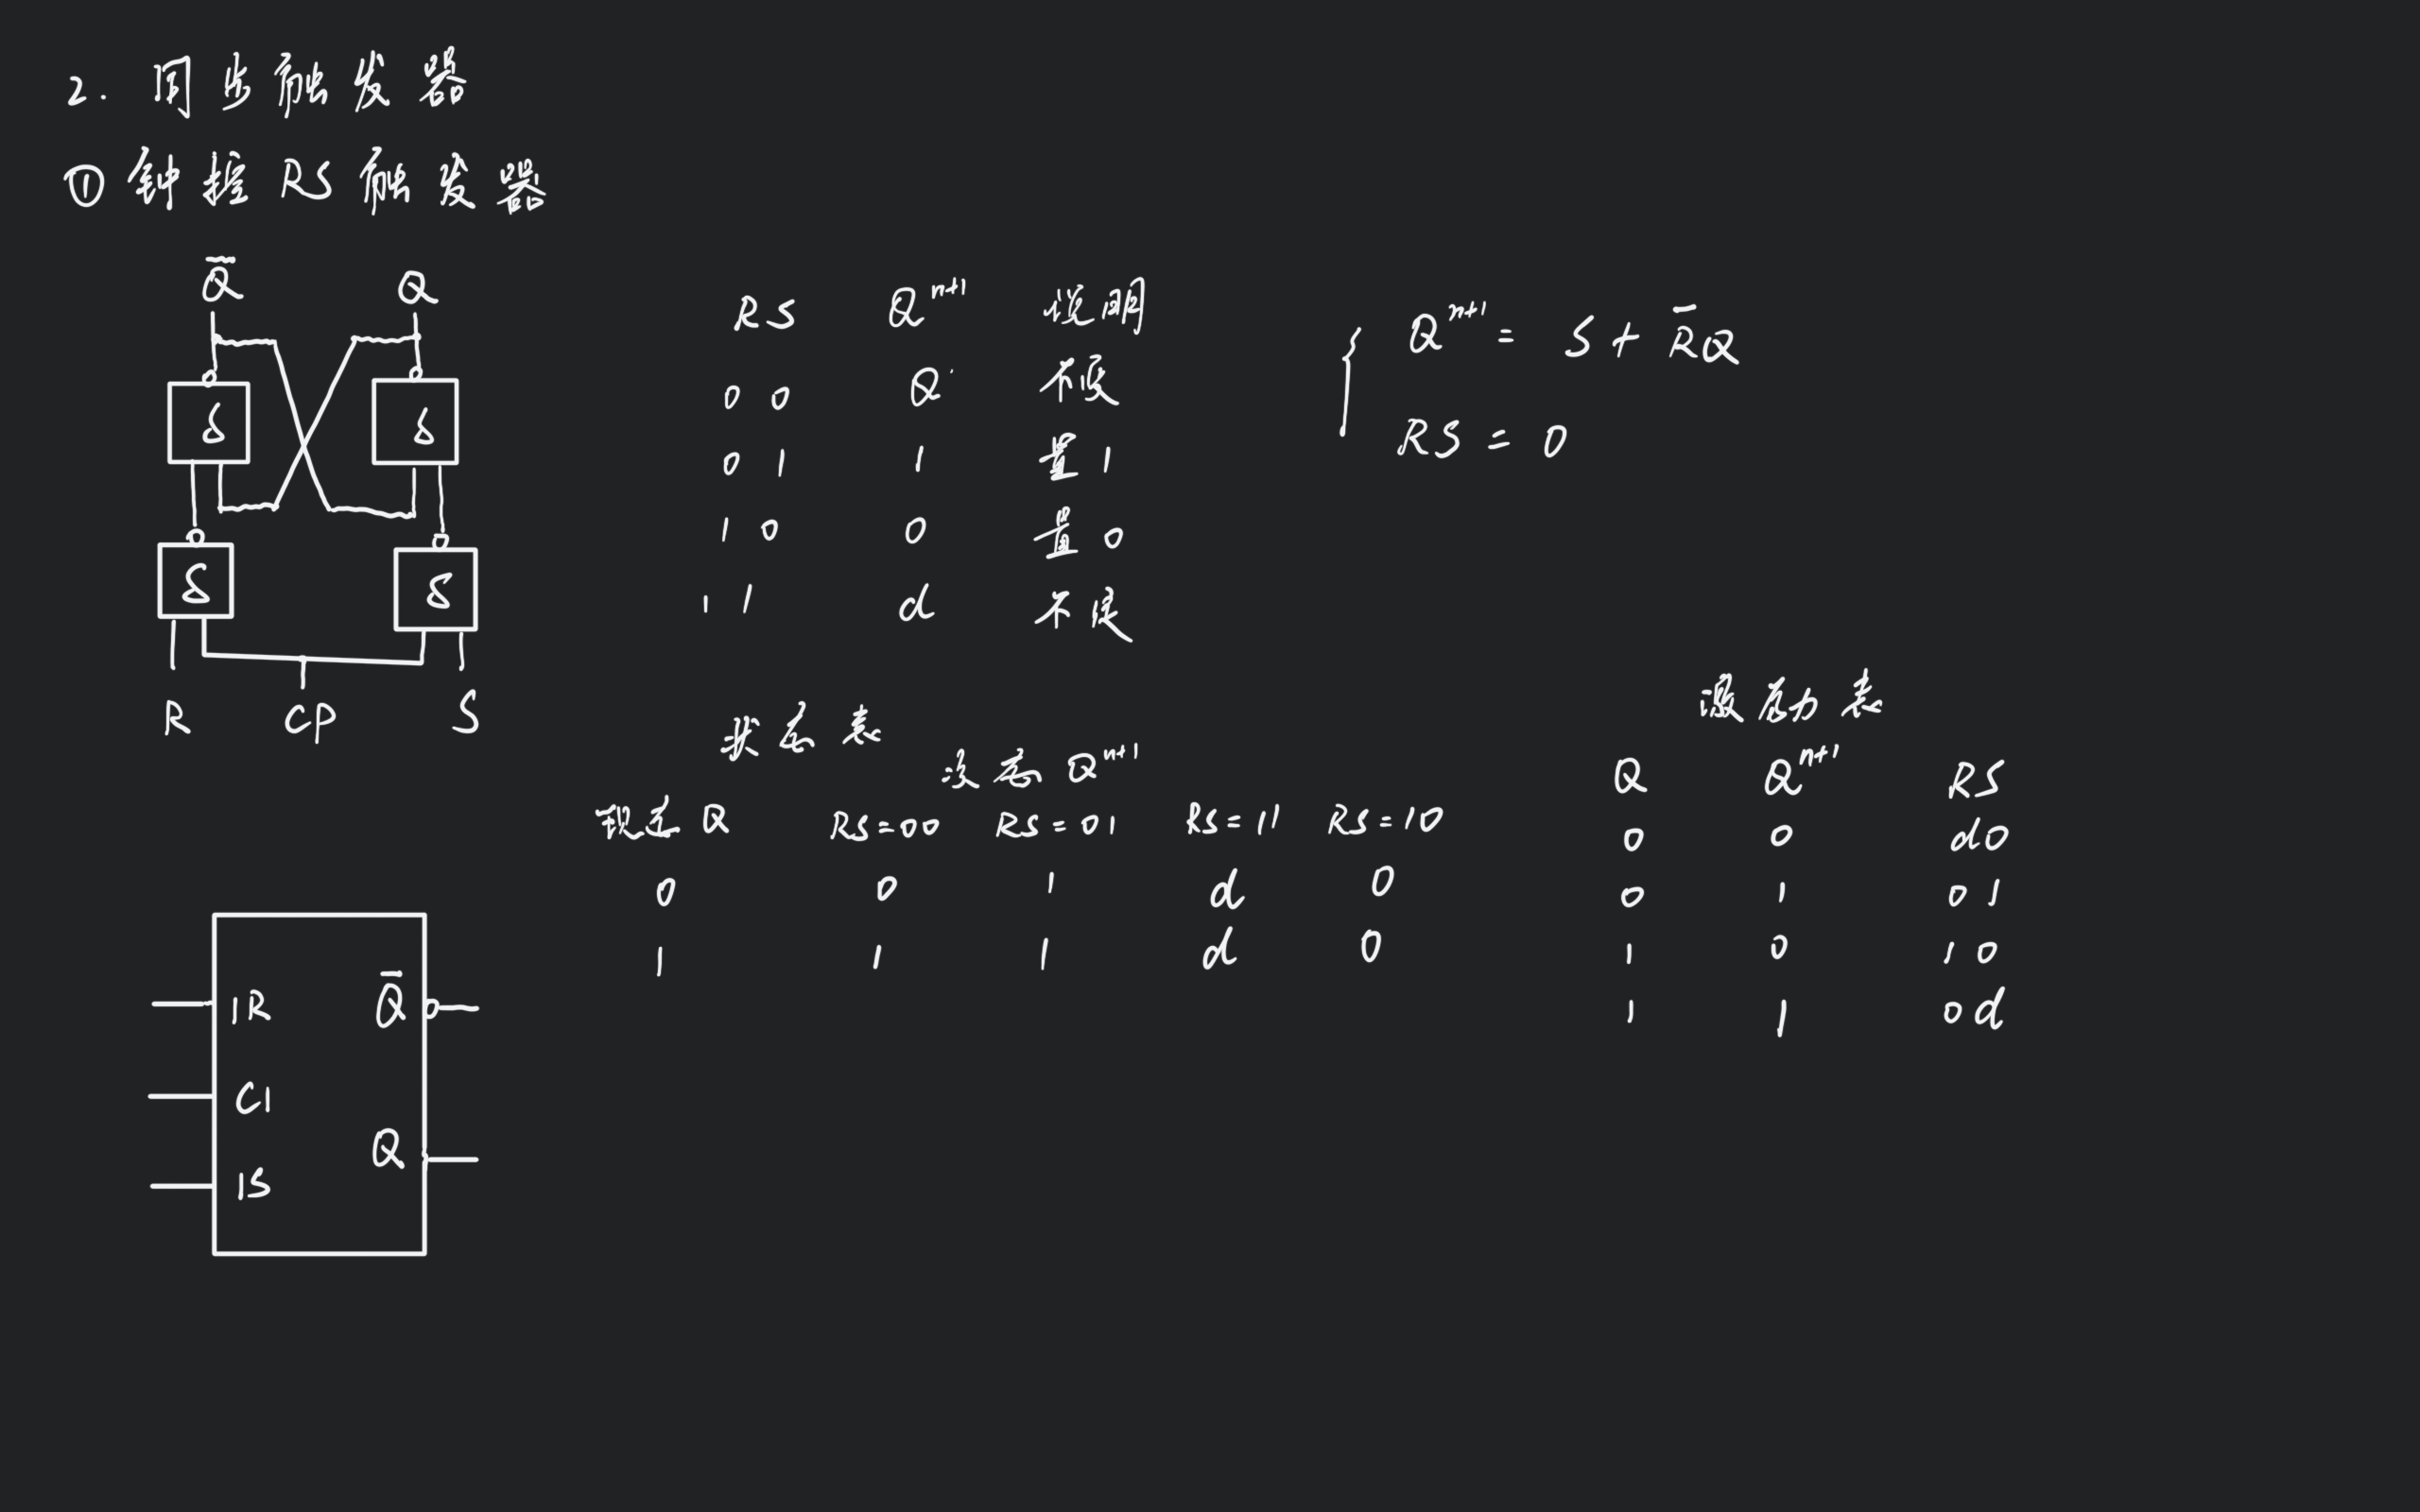 2. 同步触发器
① 钟控RS触发器
Q̄ Q
& &
& &
R CP S
RS Qⁿ⁺¹ 说明
0 0 Q 不变
0 1 1 置1
1 0 0 置0
1 1 d 不定
Qⁿ⁺¹ = S + R̄Q
RS = 0
状态表
次态 Qⁿ⁺¹
现态 Q RS=00 RS=01 RS=11 RS=10
0 0 1 d 0
1 1 1 d 0
激励表
Q Qⁿ⁺¹ RS
0 0 d0
0 1 01
1 0 10
1 1 0d
1R Q̄
C1
1S Q